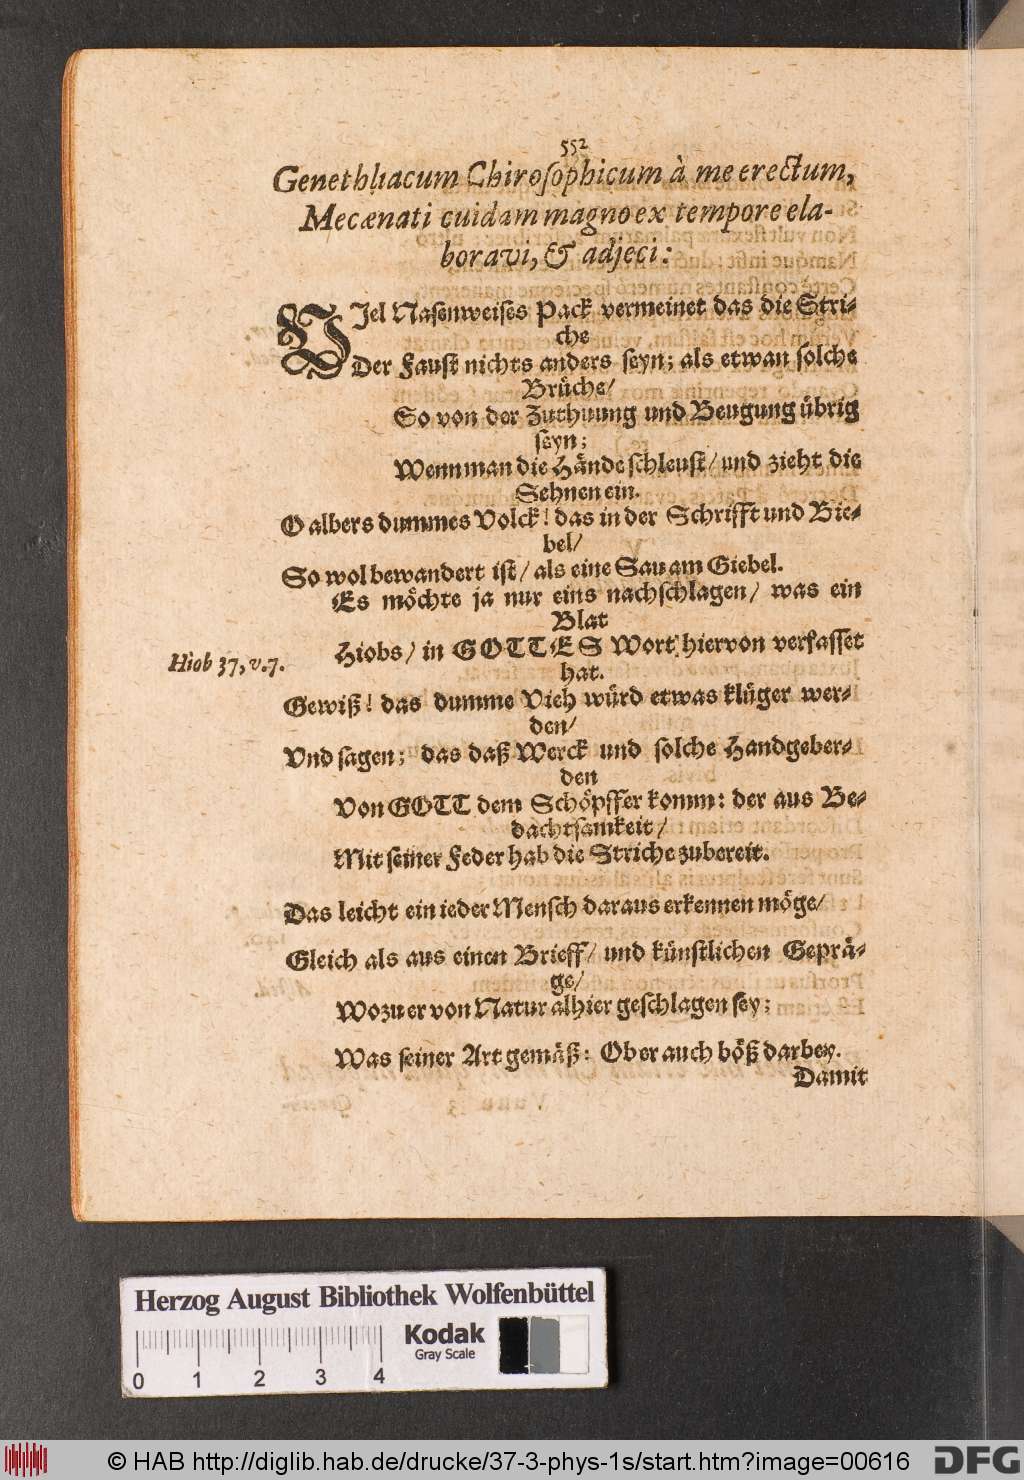 552
Genethliacum Chirosophicum à me erectum,
Mecænati cuidam magno ex tempore ela-
boravi, & adjeci:
VJel Nasenweises Pack vermeinet das die Stri-
che
Der Faust nichts anders seyn; als etwan solche
Brüche/
So von der Zuthuung und Beugung übrig
seyn;
Wenn man die Hände schleust/ und zieht die
Sehnen ein.
O albers dummes Volck! das in der Schrifft und Bie-
bel/
So wol bewandert ist/ als eine Sau am Giebel.
Es möchte ja nur eins nachschlagen/ was ein
Blat
Hiob 37, v. 7.
Hiobs/ in GOTTES Wort hiervon verfasset
hat.
Gewiß! das dumme Vieh würd etwas klüger wer-
den/
Vnd sagen; das daß Werck und solche Handgeber-
den
Von GOTT dem Schöpffer komm: der aus Be-
dachtsamkeit/
Mit seiner Feder hab die Striche zubereit.
Das leicht ein ieder Mensch daraus erkennen möge/
Gleich als aus einen Brieff/ und künstlichen Geprä-
ge/
Wozu er von Natur alhier geschlagen sey;
Was seiner Art gemäß: Ob er auch böß darbey.
Damit
Herzog August Bibliothek Wolfenbüttel
Kodak
Gray Scale
0 1 2 3 4
© HAB http://diglib.hab.de/drucke/37-3-phys-1s/start.htm?image=00616
DFG